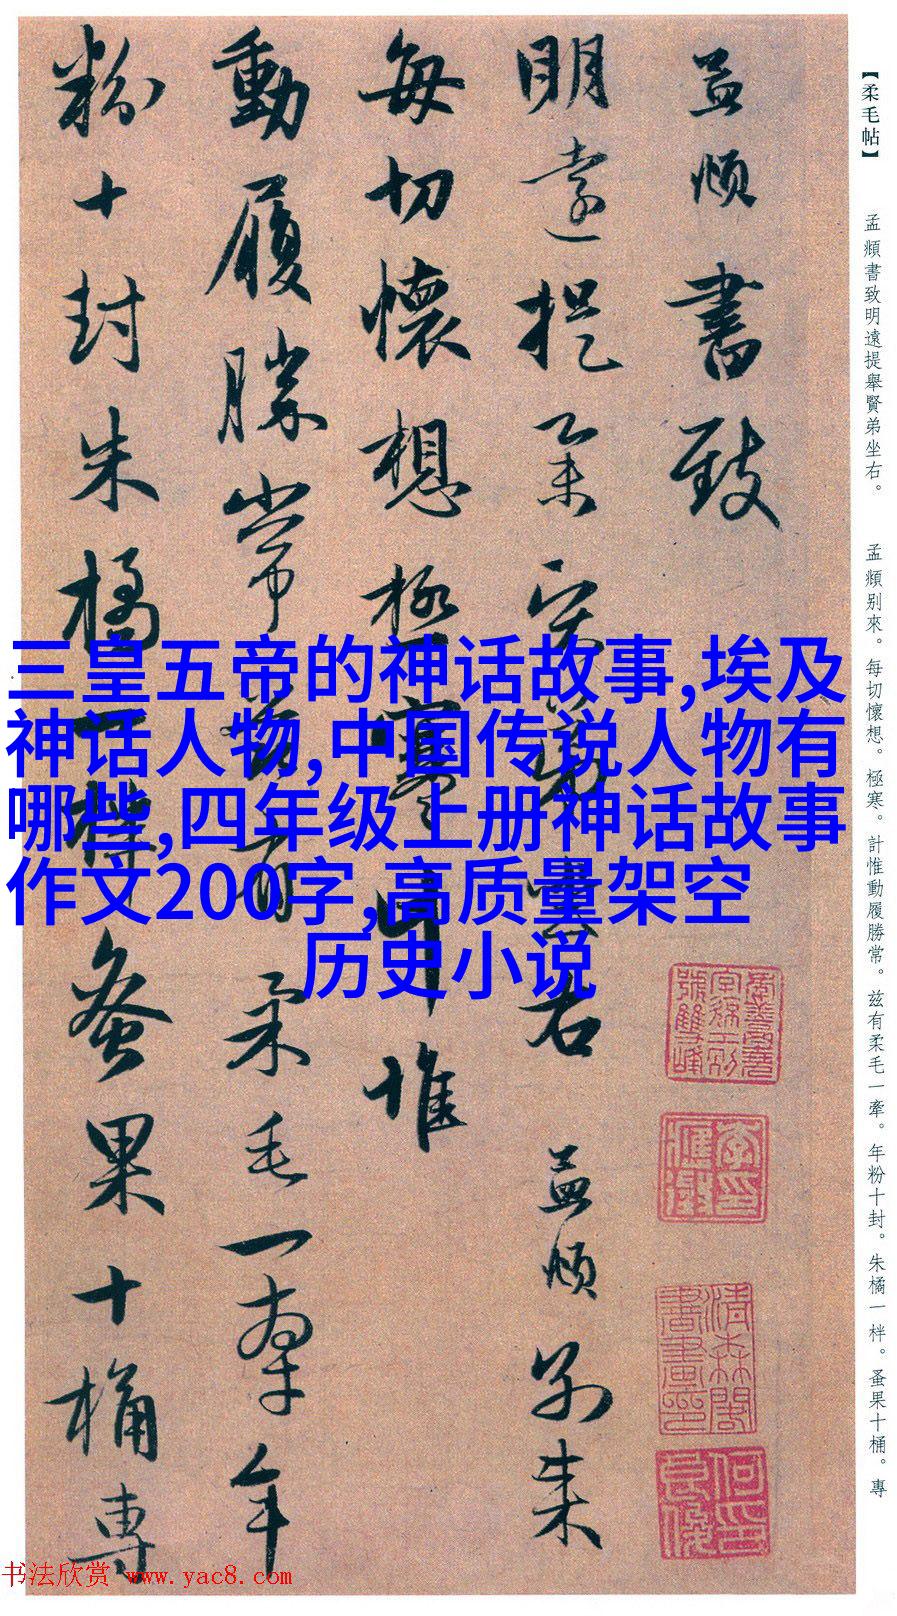 【柔毛帖】
孟頫書致明遠提舉賢弟坐右。
孟頫别來。每切懷想。極寒。計惟動履勝常。兹有柔毛一牽。年粉十封。朱橘一柈。蚤果十桶。專
孟頫書致
明遠提舉賢弟坐右 孟頫别来
每切懷想極寒計惟
動履勝常兹有柔毛一牽年
粉十封朱橘一柈蚤果十桶專
三皇五帝的神话故事,埃及
神话人物,中国传说人物有
哪些,四年级上册神话故事
作文200字,高质量架空
历史小说
书法欣赏 www.yac8.com